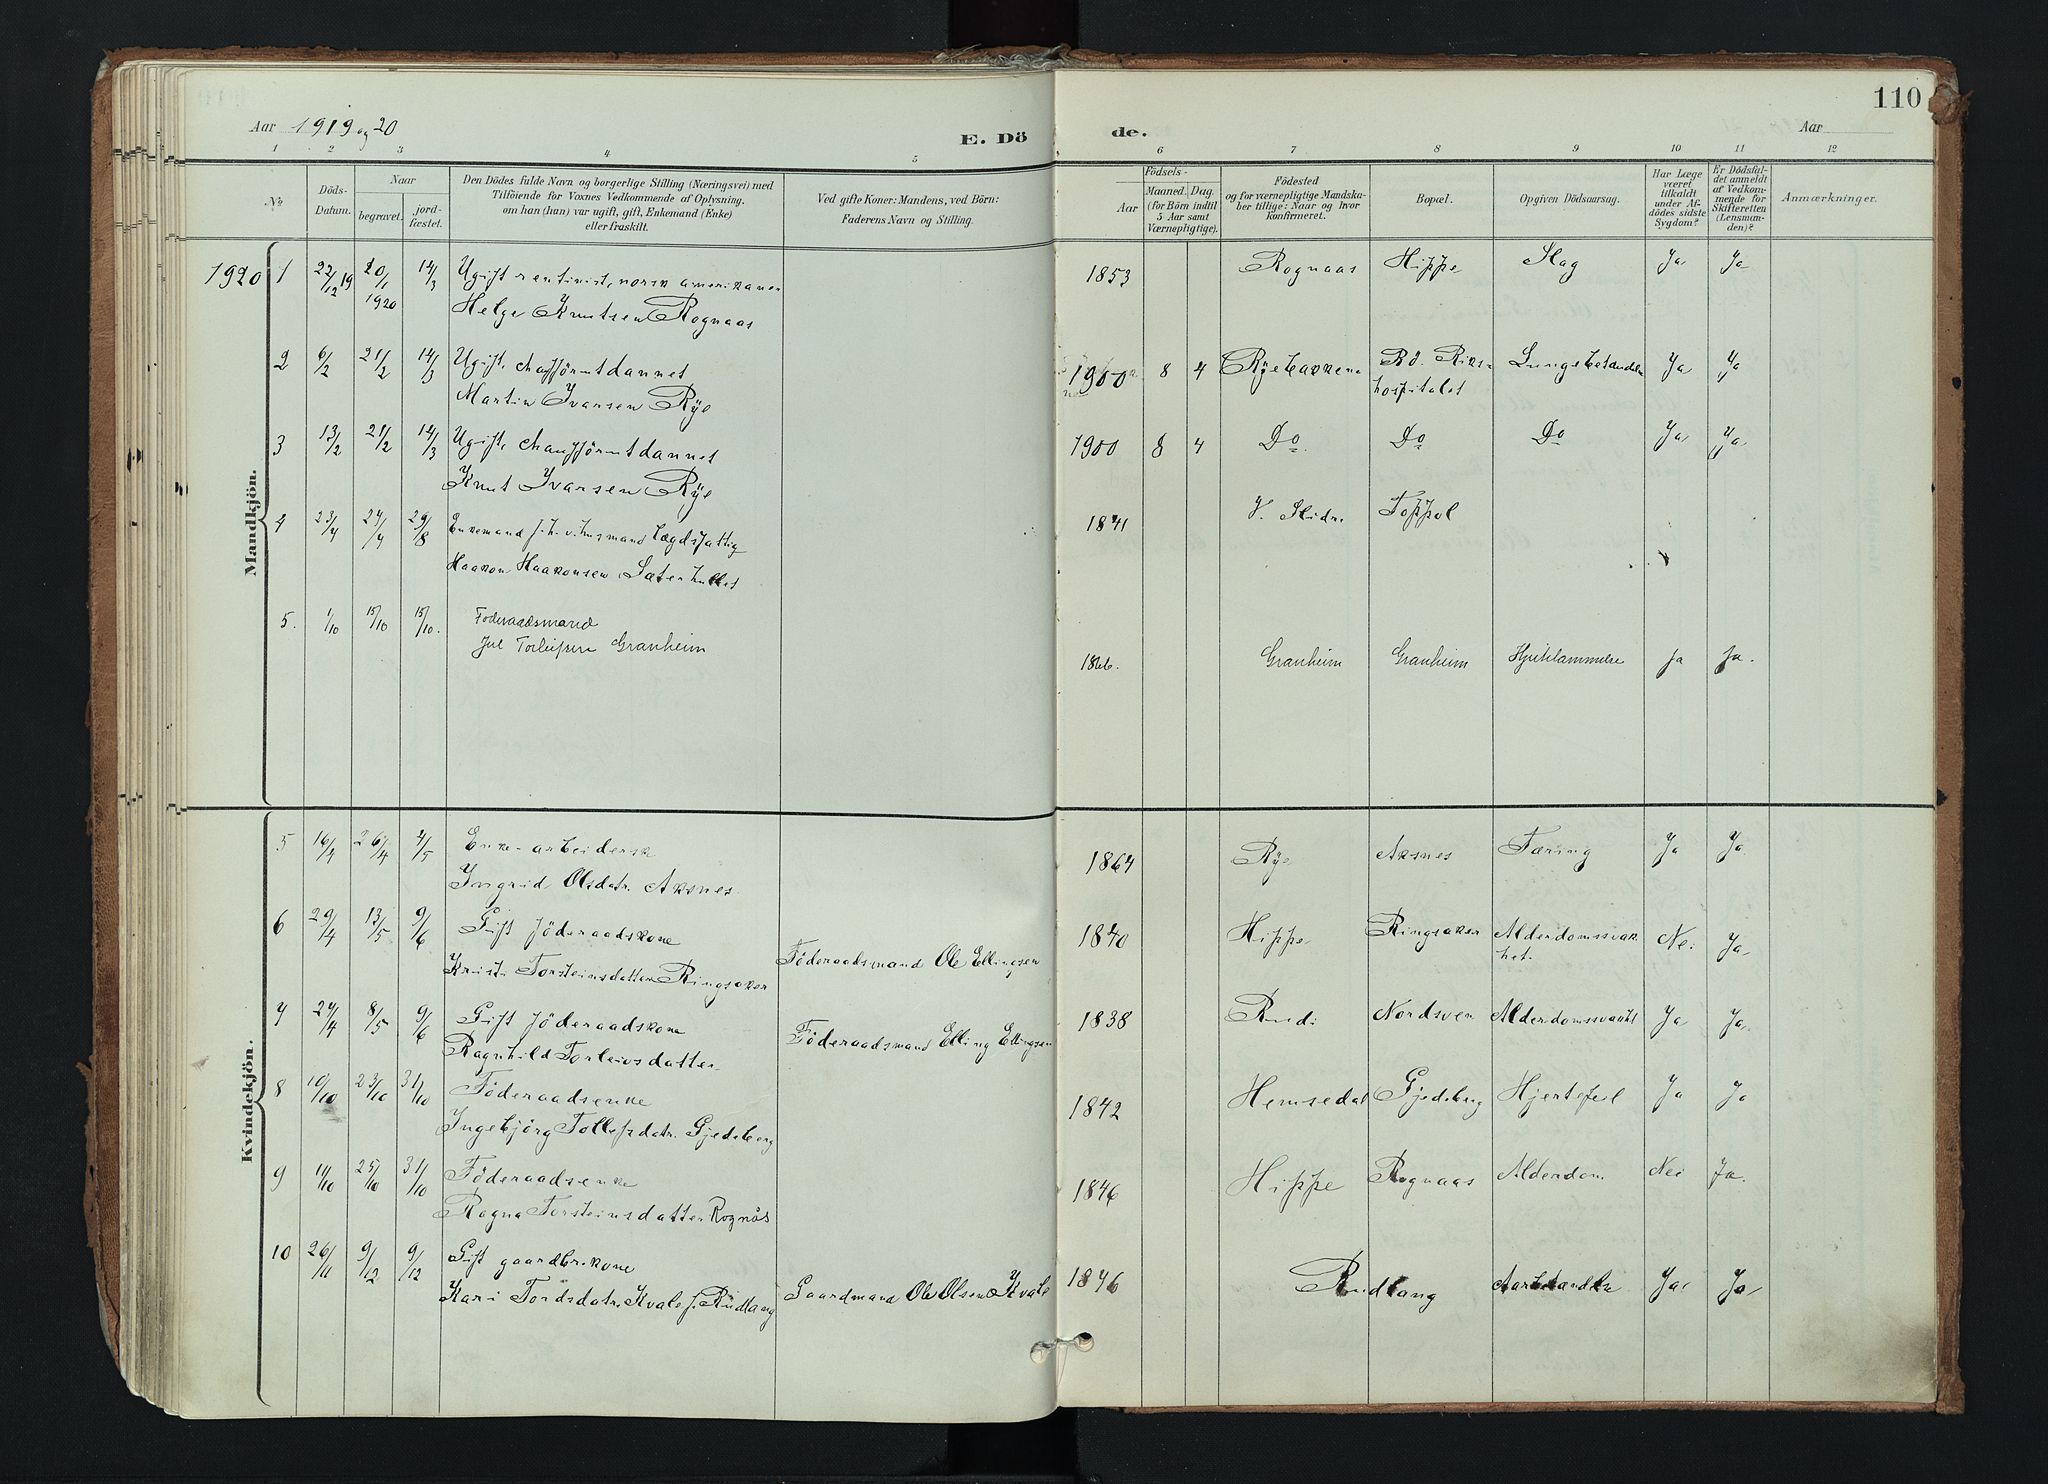 Aar 1919 og 20
E. Dö
de.
110
Aar
1 2 3 4 5 6 7 8 9 10 11 12
№
Döds-
Datum.
Naar
begravet.
jord-
fæstet.
Den Dödes fulde Navn og borgerlige Stilling (Næringsvei) med
Tilföiende for Voxnes Vedkommende af Oplysning,
om han (hun) var ugift, gift, Enkemand (Enke)
eller fraskilt.
Ved gifte Koner: Mandens, ved Börn:
Faderens Navn og Stilling.
Födsels-
Aar
Maaned. Dag.
(for Börn indtil
5 Aar samt
Værnepligtige).
Födested
og for værnepligtige Mandska-
ber tillige: Naar og hvor
konfirmeret.
Bopæl.
Opgiven Dödsaarsag.
Har Læge
været
tilkaldt
under Af-
dödes sidste
Sygdom?
Er Dödsfal-
det anmeldt
af Vedkom-
mende for
Skifteretten
(Lensman-
den)?
Anmærkninger.
Mandkjön.
1920 1 22/12 19 20/1 1920 14/3 Ugift rentinist, norsk amerikaner
Helge Knutsen Rognaas
1853 Rognaas Hippe Slag Ja Ja
2 6/2 21/2 14/3 Ugift, chafförutdannet
Martin Ivarsen Rye
1900 8 4 Ryebakken Bö. Riks-
hospitalet Lungebetændelse Ja Ja
3 13/2 21/2 14/3 Ugift, chaufförutdannet
Knut Ivarsen Rye
1900 8 4 Do Do Do Ja Ja
4 23/4 27/4 29/8 Enkemand f. h. v. husmand lægdsfattig
Haakon Haakonsen Sæterhullet
1841 V. Slidre Toppol
5. 1/10 15/10 15/10. Föderaadsmand
Jul Torleifsen Granheim
1866. Granheim Granheim Hjertelammelse Ja Ja.
Kvindekjön.
5 16/4 26/4 4/5 Enke-arbeiderske
Ingrid Olsdatr. Aksnes.
1864 Rye Aksnes Tæring Ja Ja
6 29/4 13/5 9/6 Gift föderaadskone
Kristi Torsteinsdatter Ringsaker
Föderaadsmand Ole Ellingsen
1840 Hippe Ringsaker Alderdomssvak
het. Nei Ja
7 27/4 8/5 9/6 Gift föderaadskone
Ragnhild Torleivsdatter
Föderaadsmand Elling Ellingsen
1838 Rudi Nordsven Alderdomssvakht Ja Ja.
8 10/10 23/10 31/10 Föderaadsenke
Ingebjörg Tollefsdatr. Gjedeberg
1842 Hemsedal Gjedeberg Hjertefeil Ja Ja
9 11/10 25/10 31/10 Föderaadsenke
Ragna Torsteinsdatter Rognås
1846 Hippe Rognaas Alderdom Nei Ja.
10 26/11 9/12 9/12 Gift gaardbr.kone
Kari Tordsdatr. Kvale f. Rudlang
Gaardmand Ole Olsen Kvale
1846 Rudlang Ja Ja